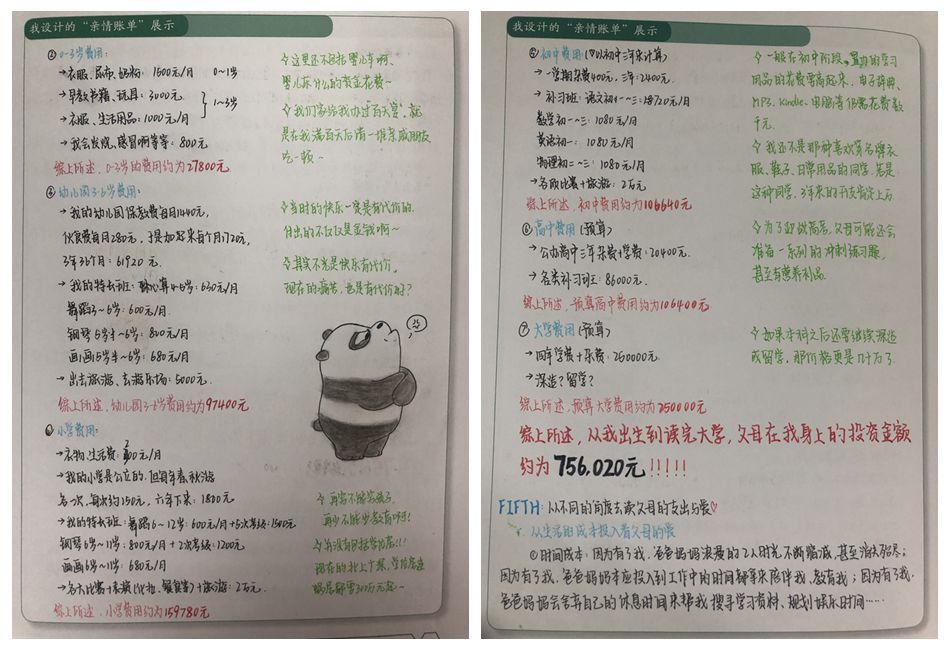 我设计的“亲情账单”展示
③ 0-3岁费用:
→衣服、尿布、奶粉: 1500元/月 0~1岁
→早教书籍、玩具: 3000元.
→衣服、生活用品: 1000元/月
1~3岁
→我会发烧、感冒啊等等: 800元
综上所述, 0-3岁的费用约为27800元
✧这里还不包括婴儿车啊、
婴儿床什么的资金花费~
✧我们家给我办过百天宴, 就
是在我满百天后请一堆亲戚朋友
吃一顿~
④ 幼儿园3-6岁费用:
→我的幼儿园保教费每月1440元,
伙食费每月280元, 于是加起来每个月1720元,
3年36个月: 61920元.
→我的特长班: 心算4-6岁: 630元/月
舞蹈3~6岁: 600元/月
钢琴5岁半~6岁: 800元/月
画画5岁半~6岁: 680元/月
→出去旅游、去游乐场: 5000元.
综上所述, 幼儿园3-6岁费用约为97400元
✧当时的快乐一定是有代价的.
付出的不仅仅是金钱啊~
✧其实不光是快乐有代价,
现在的痛苦, 也是有代价的?
小学费用:
→衣物、生活费: 元/月
→我的小学是公立的, 但每年春、秋游
各一次, 每次约150元, 六年下来: 1800元
→我的特长班: 舞蹈6~12岁: 600元/月+5次考级: 1500元
钢琴6岁~11岁: 800元/月+2次考级: 1200元
画画6岁~11岁: 680元/月
+旅游: 2万元.
综上所述, 小学费用约为159780元
✧再穷不能穷孩子,
再少不能少教育啊!
✧并没有包括学区房!!!
现在的北上广深, 学位房
我设计的“亲情账单”展示
⑤ 初中费用: (以初中三年来计算)
→一学期杂费400元, 三年: 2400元.
→补习班: 语文初一~三: 18720元/月
数学初一~三: 1080元/月
英语初一: 1080元/月
物理初二~三: 1080元/月
→各项比赛+旅游: 2万元
综上所述, 初中费用约为106640元
✧一般在初中阶段, 置办的学习
用品的花费要高起来, 电子辞典、
MP3、Kindle、电脑等仍需花费数
千元.
✧我还不是那种喜欢穿名牌衣
服、鞋子、日常用品的同学, 若是
这种同学, 3年来的开支肯定上万.
⑥ 高中费用 (预算)
→公办高中三年杂费+学费: 20400元.
→各类补习班: 86000元.
综上所述, 预算高中费用约为106400元
✧为了即将高考, 父母可能还会
准备一系列的冲刺练习题,
甚至有营养补品.
⑦ 大学费用 (预算)
→四年学费+杂费: 250000元.
→深造? 留学?
综上所述, 预算大学费用约为250000元
✧如果本科之后还要继续深造
或留学, 那价格更是几十万了.
综上所述, 从我出生到读完大学, 父母在我身上的投资金额
约为756,020元!!!!!
FIFTH: 从不同的角度去读父母的支出与爱♡
从生活的成本投入看父母的爱
①时间成本: 因为有了我, 爸爸妈妈浪漫的2人时光不断缩减, 甚至消失殆尽;
因为有了我, 爸爸妈妈本应投入到工作中的时间都拿来陪伴我、教育我; 因为有了我,
爸爸妈妈会舍弃自己的休息时间来帮我搜寻学习资料、规划娱乐时间……